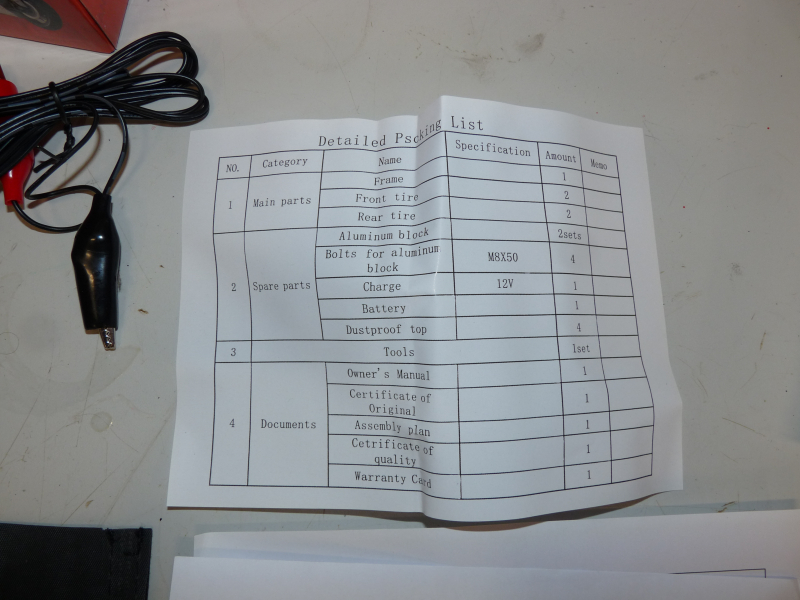 Detailed Pscking List
NO. Category Name Specification Amount Memo
1 Main parts Frame 1
Front tire 2
Rear tire 2
2 Spare parts Aluminum block 2sets
Bolts for aluminum
block M8X50 4
Charge 12V 1
Battery 1
Dustproof top 4
3 Tools 1set
4 Documents Owner's Manual 1
Certificate of
Original 1
Assembly plan 1
Cetrificate of
quality 1
Warranty Card 1